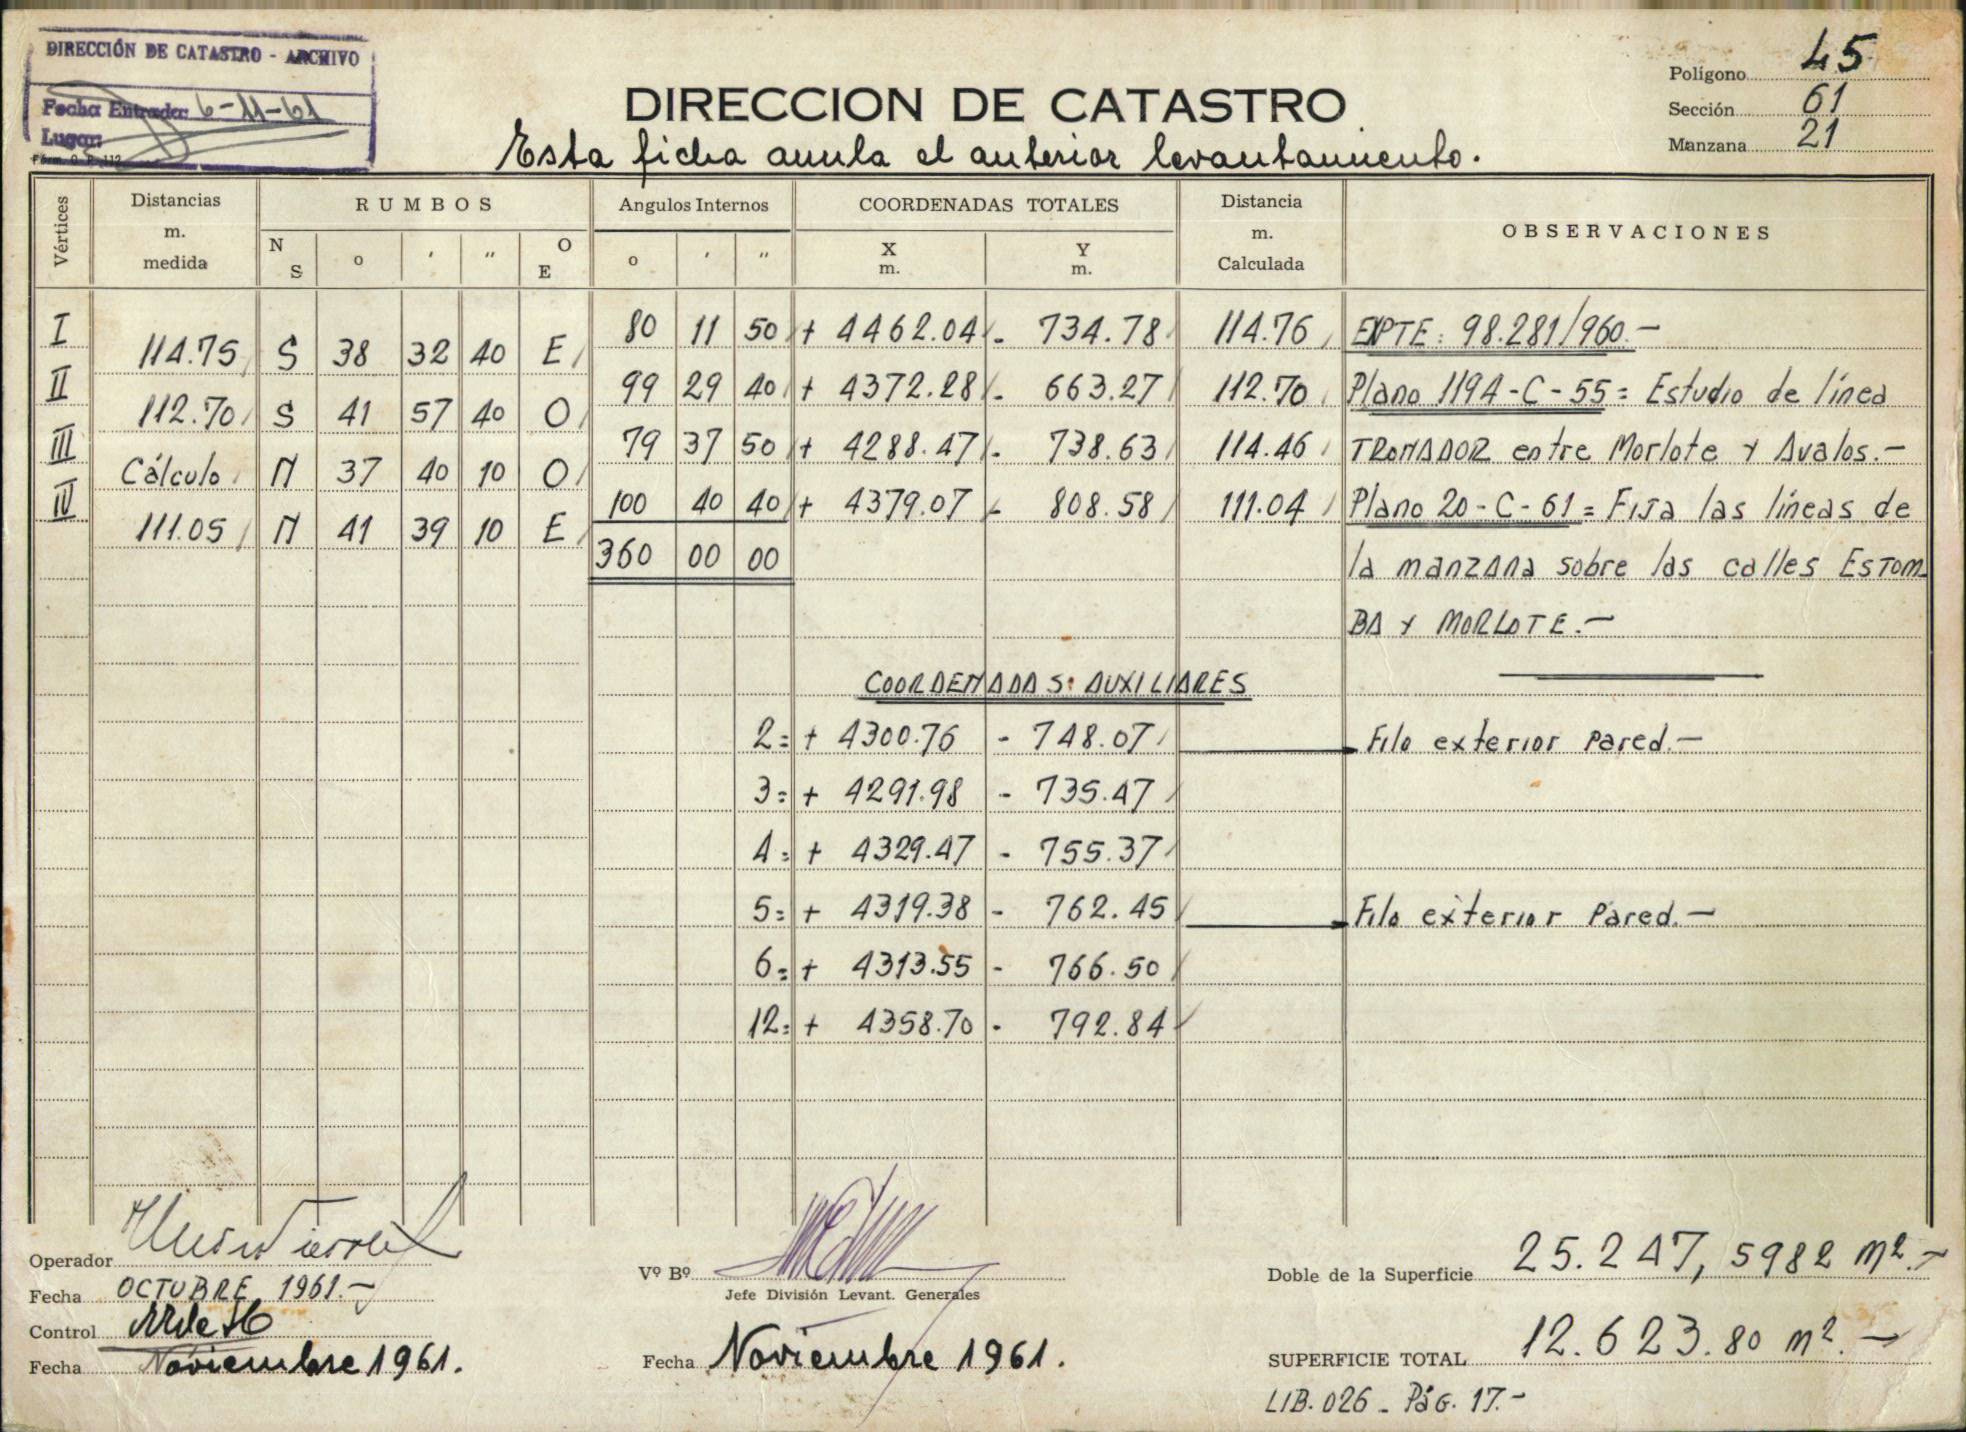 DIRECCIÓN DE CATASTRO - ARCHIVO
Fecha Entrada: 6-11-61
Lugar:
Form. O. P. 112
DIRECCION DE CATASTRO
Esta ficha anula el anterior levantamiento.
Polígono 45
Sección 61
Manzana 21
Vértices
Distancias m. medida
RUMBOS
N S o ′ ″ O E
Angulos Internos
o ′ ″
COORDENADAS TOTALES
X m. Y m.
Distancia m. Calculada
OBSERVACIONES
I 80 11 50 + 4462.04 - 734.78 114.76 EXPTE: 98.281/960.-
114.75 S 38 32 40 E
II 99 29 40 + 4372.28 - 663.27 112.70 Plano 1194-C-55= Estudio de línea
112.70 S 41 57 40 O
III 79 37 50 + 4288.47 - 738.63 114.46 TRONADOR entre Morlote y Avalos.-
Cálculo N 37 40 10 O
IV 100 40 40 + 4379.07 - 808.58 111.04 Plano 20-C-61= Fija las líneas de
111.05 N 41 39 10 E
360 00 00 la manzana sobre las calles ESTOM-
BA y MORLOTE.-
COORDENADAS: AUXILIARES
2= + 4300.76 - 748.07 Filo exterior pared.-
3= + 4291.98 - 735.47
4= + 4329.47 - 755.37
5= + 4319.38 - 762.45 Filo exterior pared.-
6= + 4313.55 - 766.50
12= + 4358.70 - 792.84
Operador
Fecha OCTUBRE 1961.-
Control
Fecha Noviembre 1961.
Vº Bº
Jefe División Levant. Generales
Fecha Noviembre 1961.
Doble de la Superficie 25.247,5982 m².-
SUPERFICIE TOTAL 12.623.80 m².-
LIB. 026 - PÁG. 17.-